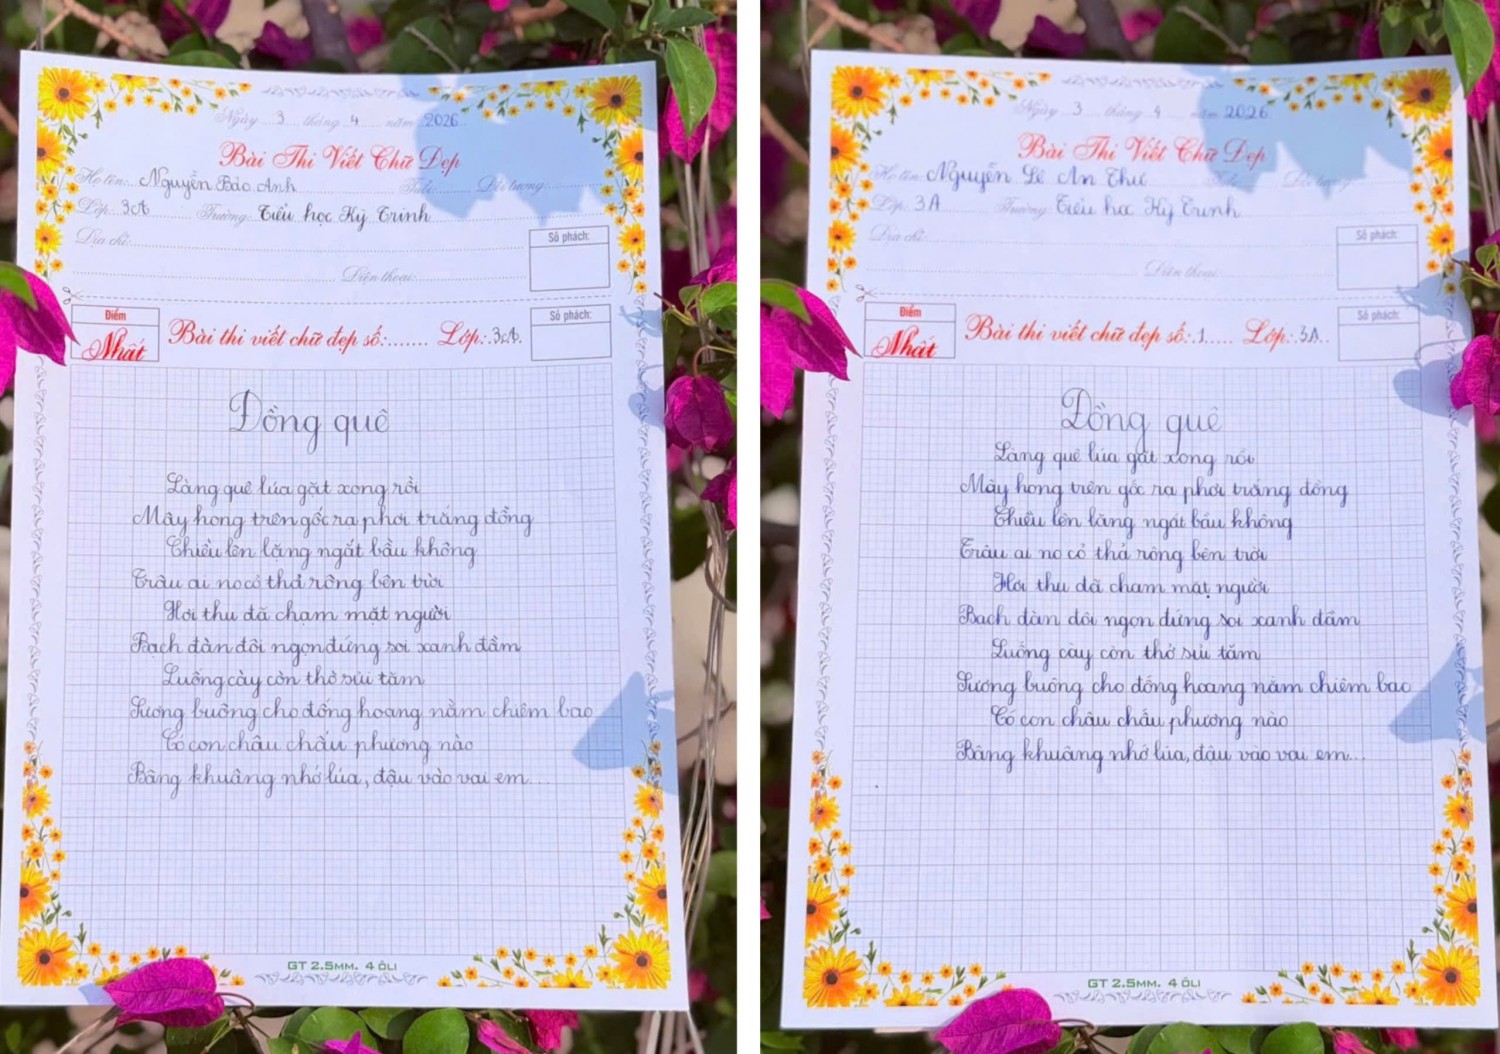 Ngày 3 tháng 4 năm 2026
Bài Thi Viết Chữ Đẹp
Họ tên: Nguyễn Bảo Anh Tuổi: Đối tượng:
Lớp: 3A Trường: Tiểu học Kỳ Trinh
Địa chỉ:
Số phách:
Điện thoại:
Điểm
Nhất
Bài thi viết chữ đẹp số:....... Lớp: 3A.
Số phách:
Đồng quê
Làng quê lúa gặt xong rồi
Mây hong trên gốc rạ phơi trắng đồng
Chiều lên lặng ngắt bầu không
Trâu ai no cỏ thả rông bên trời
Hơi thu đã chạm mặt người
Bạch đàn đôi ngọn đứng soi xanh đầm
Luống cày còn thở sủi tăm
Sương buông cho đống hoang nằm chiêm bao
Có con châu chấu phương nào
Bâng khuâng nhớ lúa, đậu vào vai em...
GT 2.5MM. 4 ÔLI
Ngày 3 tháng 4 năm 2026
Bài Thi Viết Chữ Đẹp
Họ tên: Nguyễn Lê An Thư
Lớp: 3A Trường: Tiểu học Kỳ Trinh
Địa chỉ:
Số phách:
Điện thoại:
Điểm
Nhất
Bài thi viết chữ đẹp số: 1..... Lớp: 3A..
Số phách:
Đồng quê
Làng quê lúa gặt xong rồi
Mây hong trên gốc rạ phơi trắng đồng
Chiều lên lặng ngắt bầu không
Trâu ai no cỏ thả rông bên trời
Hơi thu đã chạm mặt người
Bạch đàn đôi ngọn đứng soi xanh đầm
Luống cày còn thở sủi tăm
Sương buông cho đống hoang nằm chiêm bao
Có con châu chấu phương nào
Bâng khuâng nhớ lúa, đậu vào vai em...
GT 2.5MM. 4 ÔLI